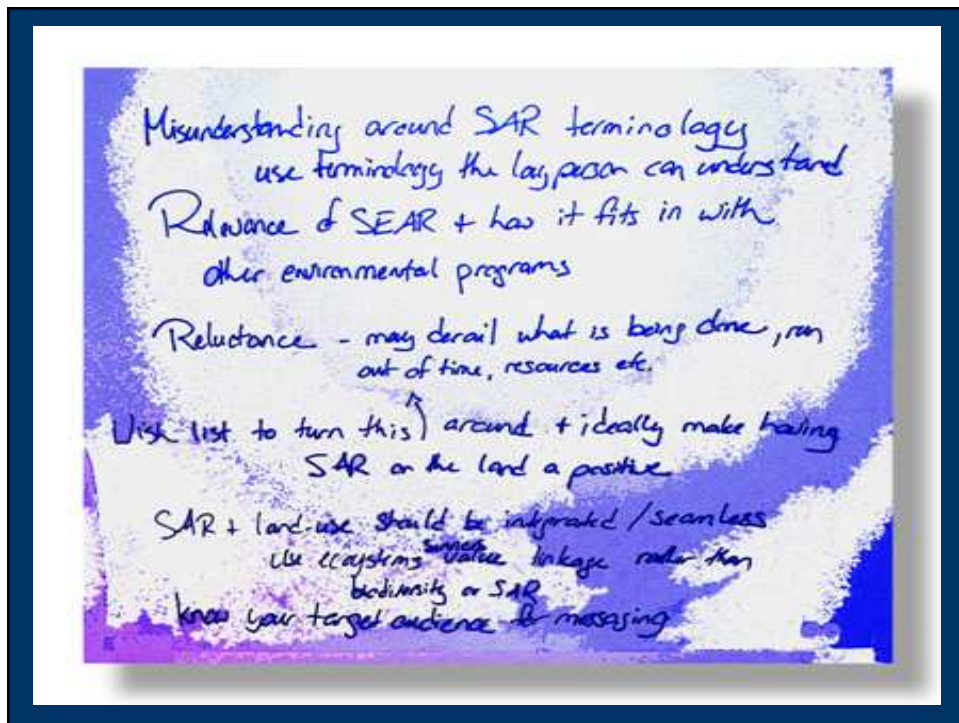 Misunderstanding around SAR terminology
use terminology the lay person can understand
Relevance of SEAR + how it fits in with
other environmental programs
Reluctance - may derail what is being done, run
out of time, resources etc.
Wish list to turn this) around + ideally make having
SAR on the land a positive
SAR + land-use should be integrated / seamless
Use ecosystems value linkage rather than
biodiversity or SAR
know your target audience for messaging